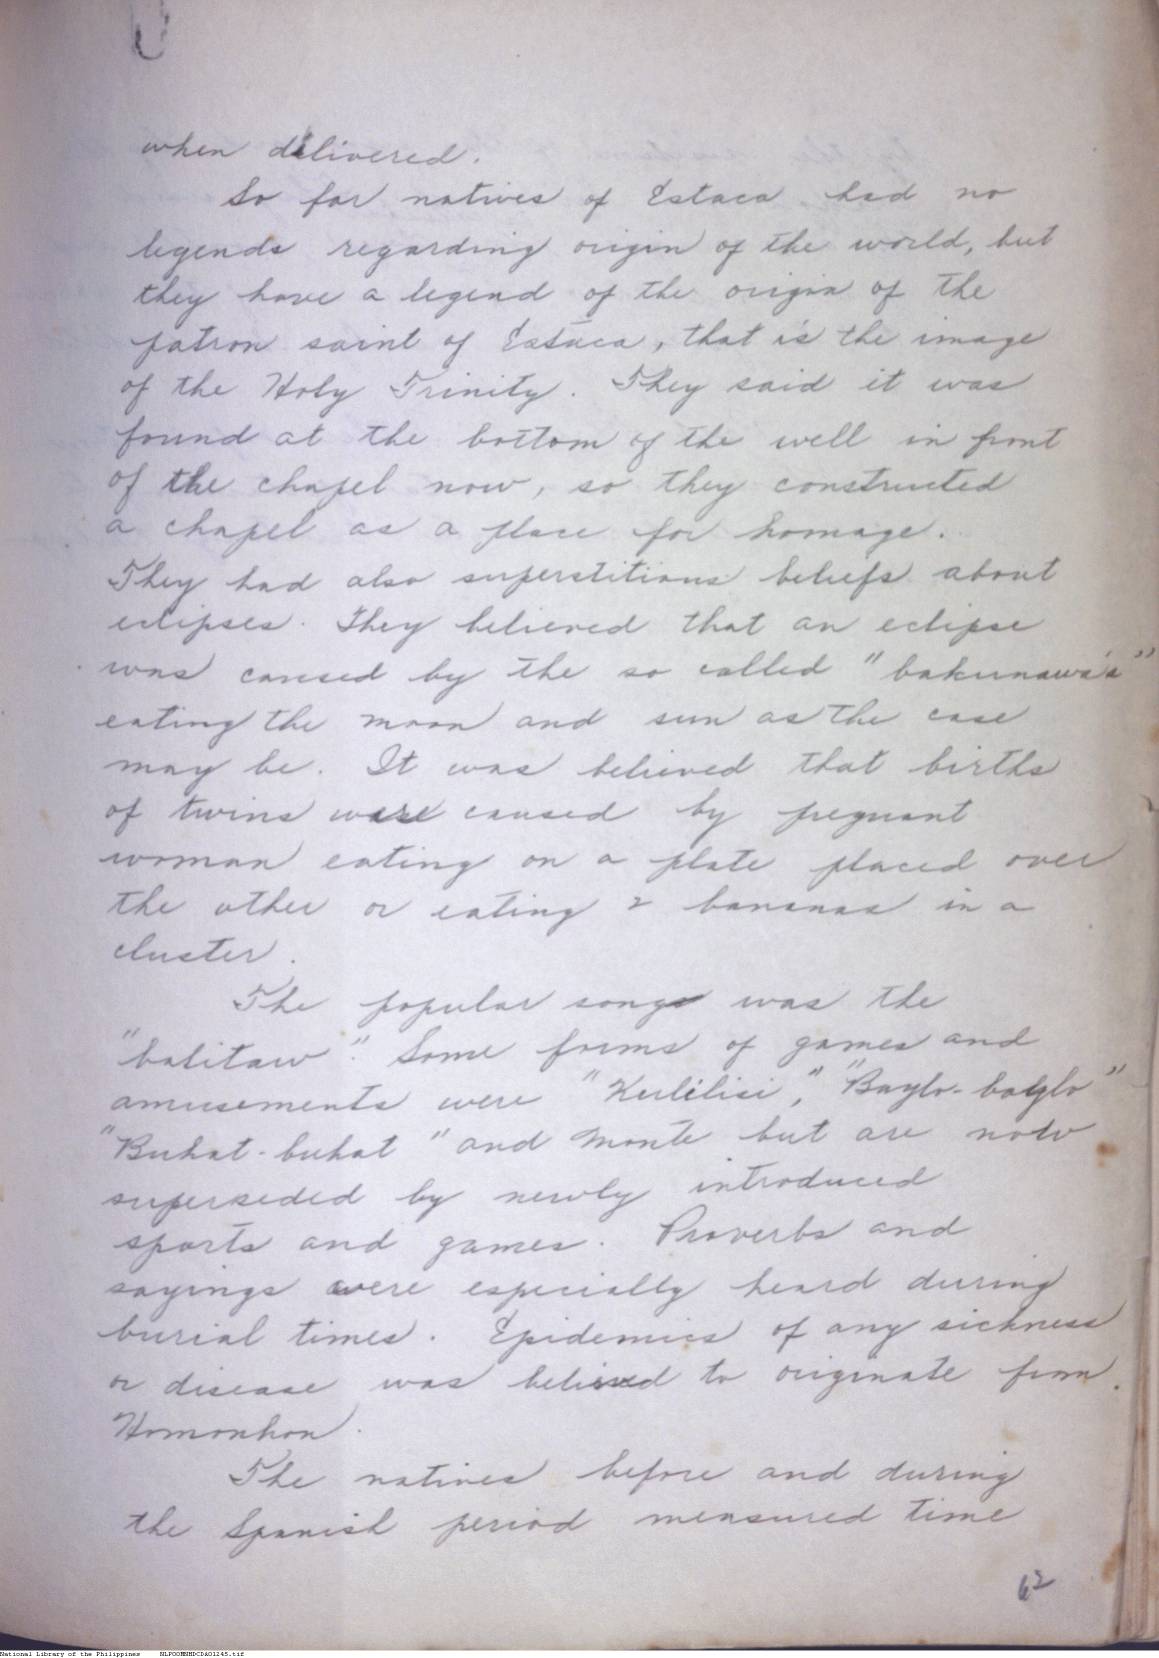 when delivered.
So far natives of Estaca had no
legends regarding origin of the world, but
they have a legend of the origin of the
patron saint of Estaca, that is the image
of the Holy Trinity. They said it was
found at the bottom of the well in front
of the chapel now, so they constructed
a chapel as a place for homage.
They had also superstitious beliefs about
eclipses. They believed that an eclipse
was caused by the so called "bakunawa's"
eating the moon and sun as the case
may be. It was believed that births
of twins were caused by pregnant
woman eating on a plate placed over
the other or eating 2 bananas in a
cluster.
The popular songs was the
"balitaw". Some forms of games and
amusements were "Kulilisi", "Baylo-baylo"
"Buhat-buhat" and Monte but are now
superseded by newly introduced
sports and games. Proverbs and
sayings were especially heard during
burial times. Epidemics of any sickness
or disease was believed to originate from
Homonhon.
The natives before and during
the Spanish period measured time
62
National Library of the Philippines NLPOOMNHDCDA01245.tif